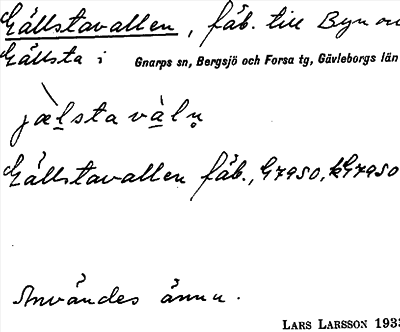 Gällstavallen, fäb. till Byn
Gällsta i Gnarps sn, Bergsjö och Forsa tg, Gävleborgs län
jæ̀l̲sta vàl̲n̥
Gällstavallen fäb., G7950, kG7950
Användes ännu.
LARS LARSSON 193